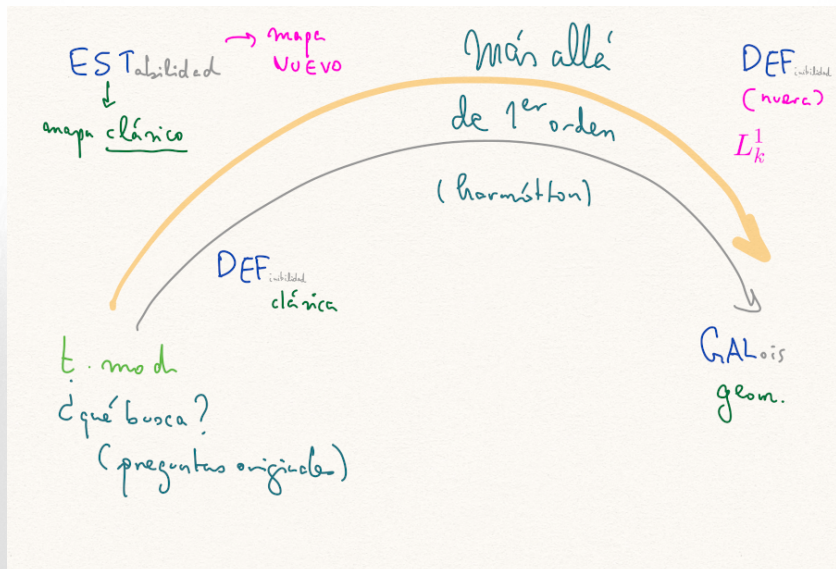 ESTabilidad → mapa
NUEVO
↓
mapa clásico
más allá
de 1er orden
(harmóttон)
DEFinibilidad
(nueva)
L_k^1
DEFinibilidad
clásica
t. mod
¿qué busca?
(preguntas originales)
GALois
geom.